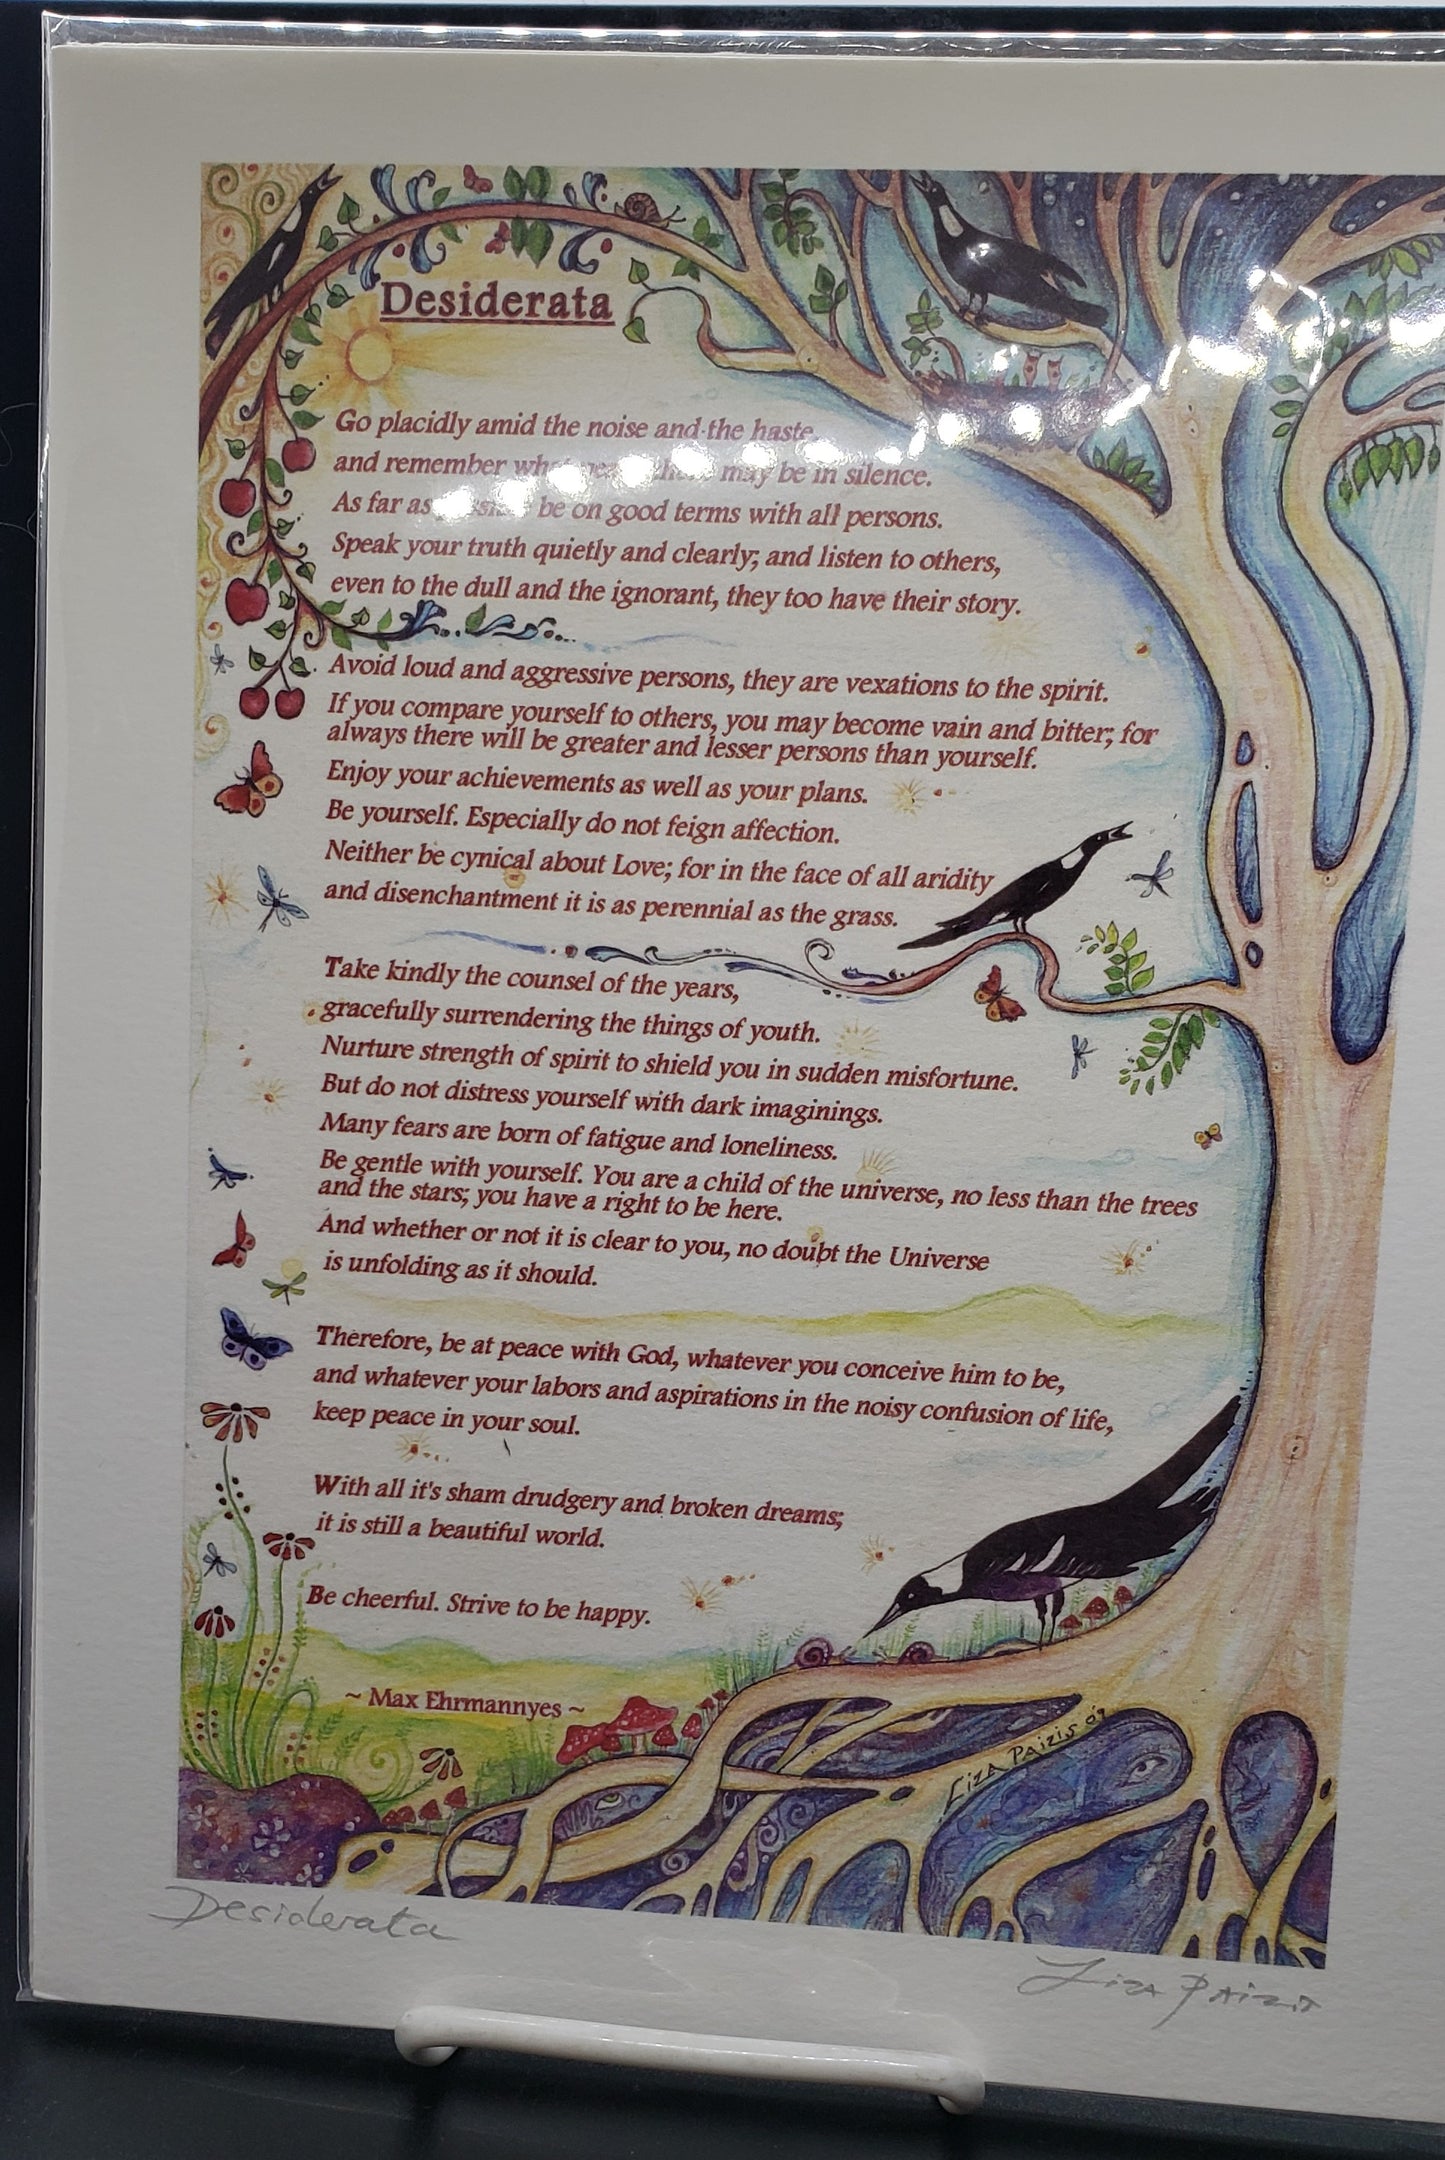 Desiderata
Go placidly amid the noise and the haste
and remember what may be in silence.
As far as be on good terms with all persons.
Speak your truth quietly and clearly; and listen to others,
even to the dull and the ignorant, they too have their story.
Avoid loud and aggressive persons, they are vexations to the spirit.
If you compare yourself to others, you may become vain and bitter; for
always there will be greater and lesser persons than yourself.
Enjoy your achievements as well as your plans.
Be yourself. Especially do not feign affection.
Neither be cynical about Love; for in the face of all aridity
and disenchantment it is as perennial as the grass.
Take kindly the counsel of the years,
gracefully surrendering the things of youth.
Nurture strength of spirit to shield you in sudden misfortune.
But do not distress yourself with dark imaginings.
Many fears are born of fatigue and loneliness.
Be gentle with yourself. You are a child of the universe, no less than the trees
and the stars; you have a right to be here.
And whether or not it is clear to you, no doubt the Universe
is unfolding as it should.
Therefore, be at peace with God, whatever you conceive him to be,
and whatever your labors and aspirations in the noisy confusion of life,
keep peace in your soul.
With all it's sham drudgery and broken dreams;
it is still a beautiful world.
Be cheerful. Strive to be happy.
~ Max Ehrmannyes ~
Liza Paizis 09
Desiderata
Liza Paizis